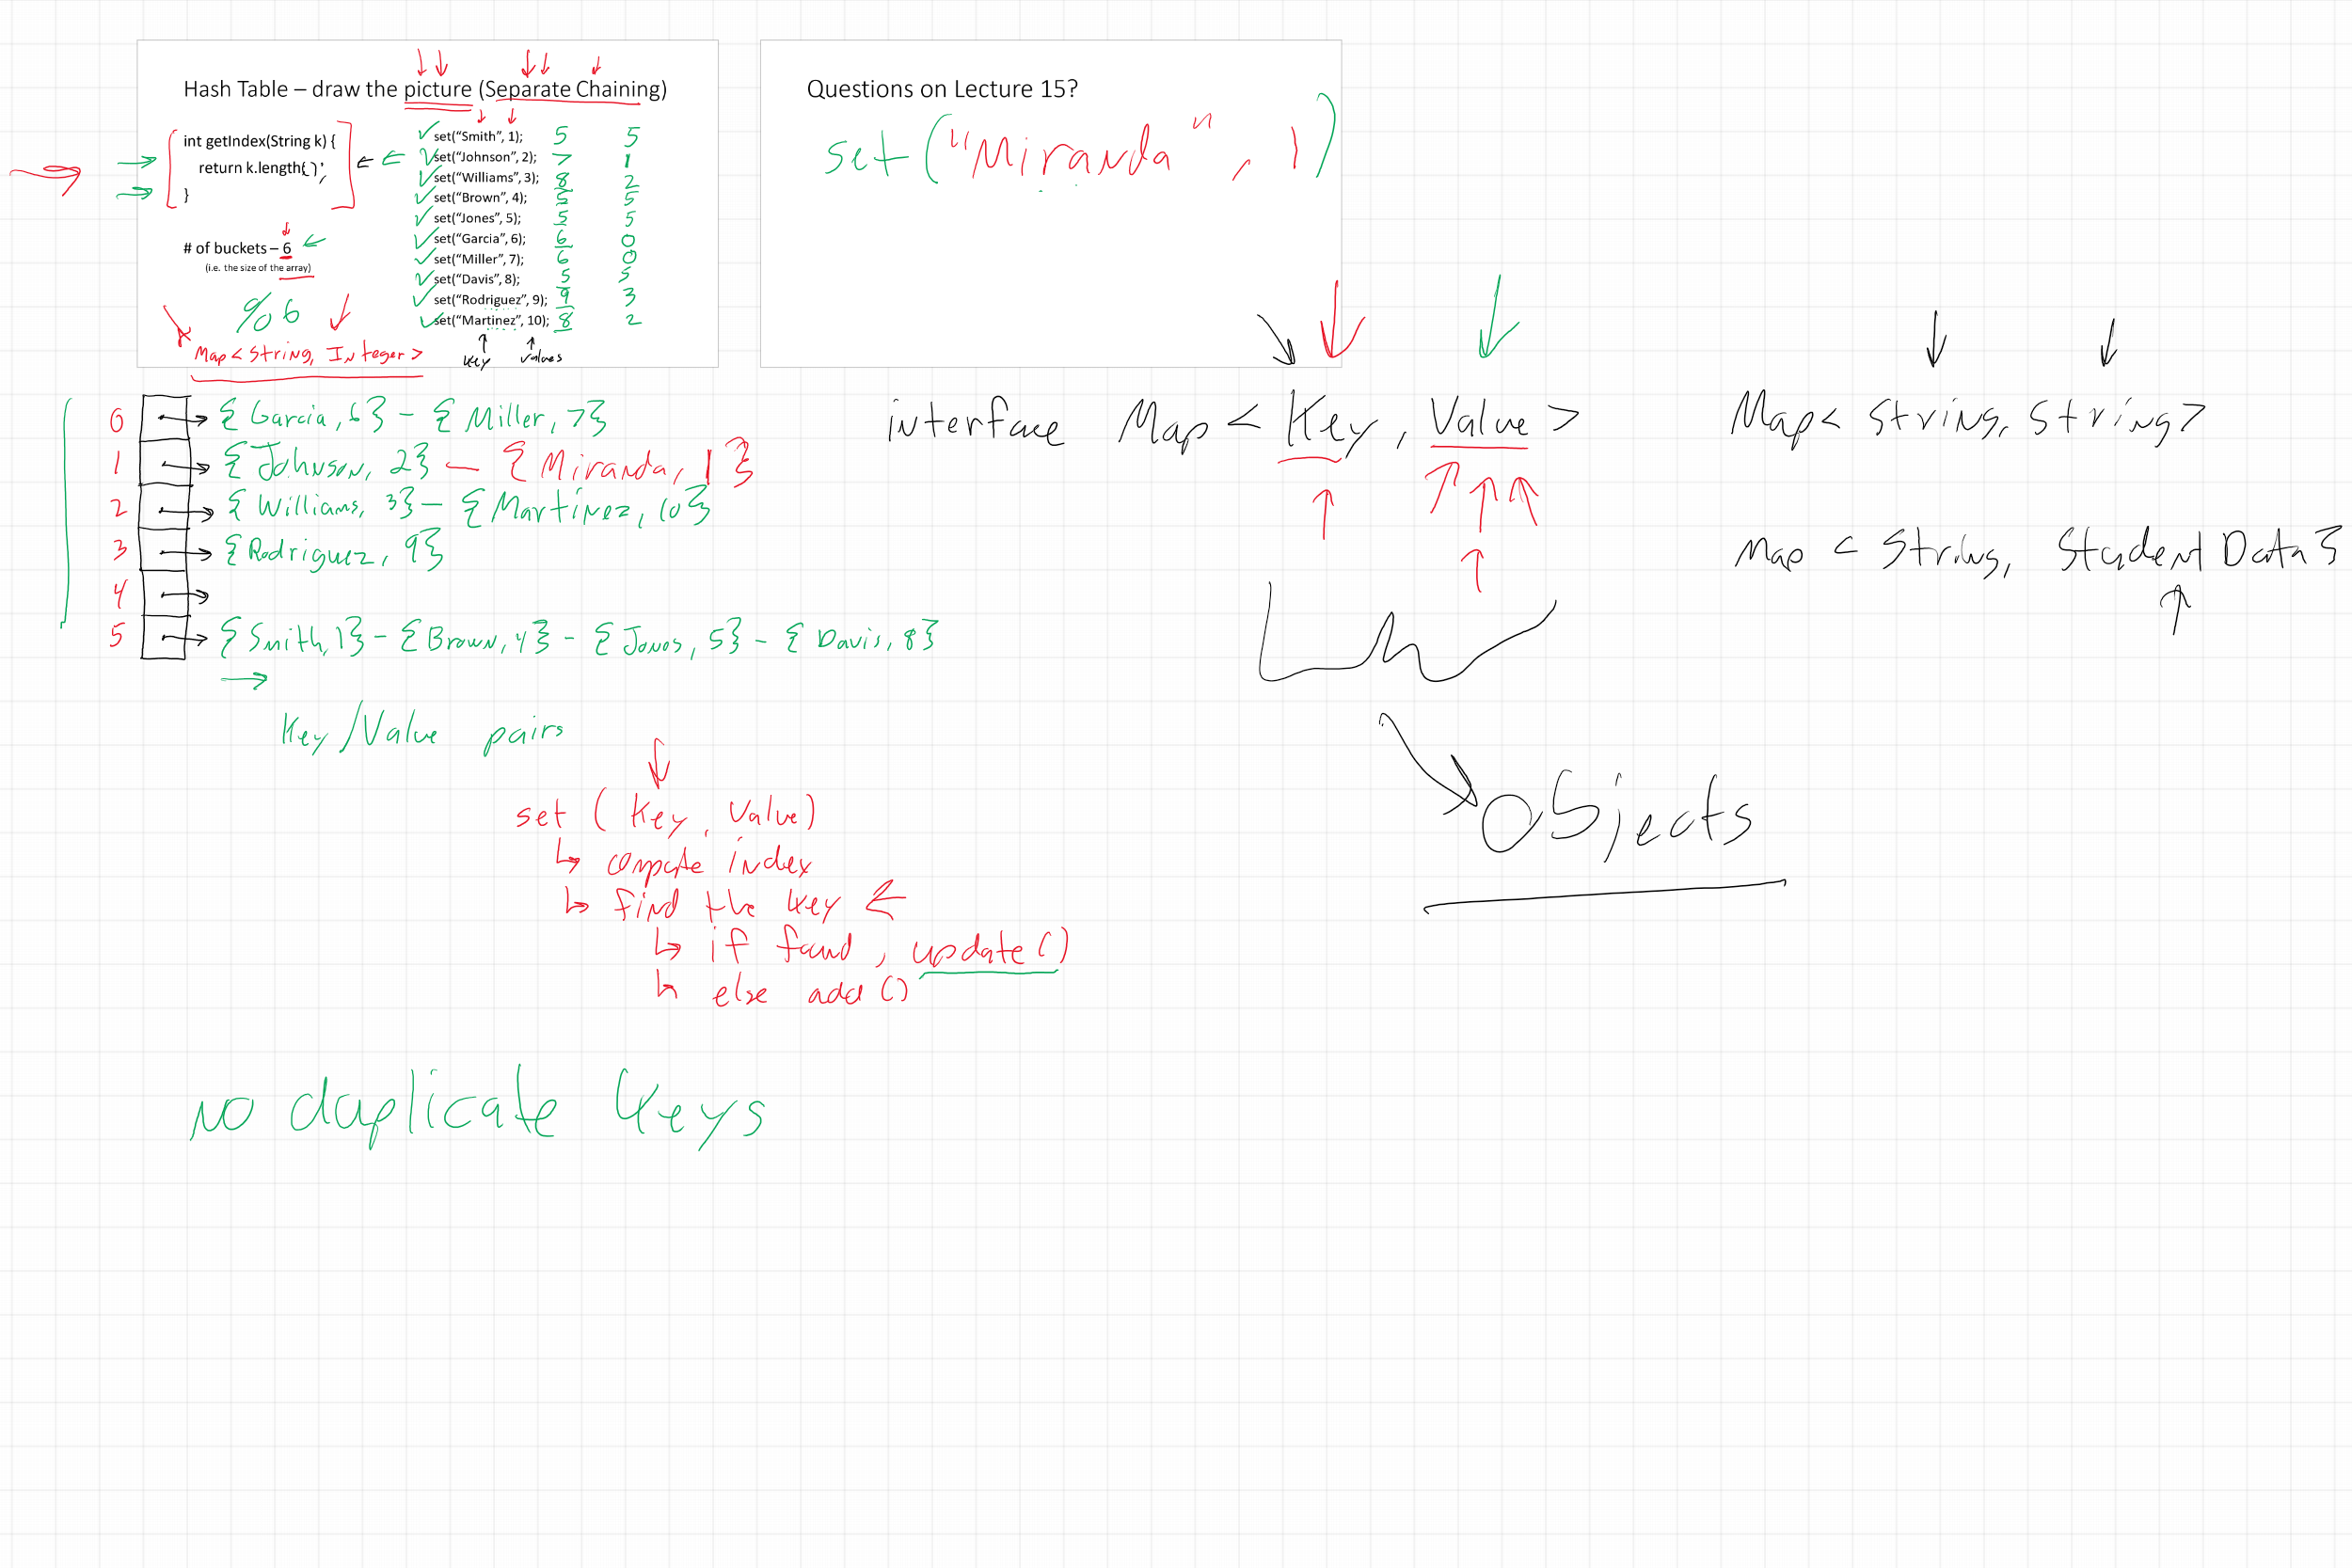 Hash Table – draw the picture (Separate Chaining)
int getIndex(String k) {
return k.length();
}
# of buckets – 6
(i.e. the size of the array)
% 6
Map < String, Integer >
set("Smith", 1); 5 5
set("Johnson", 2); 7 1
set("Williams", 3); 8 2
set("Brown", 4); 5 5
set("Jones", 5); 5 5
set("Garcia", 6); 6 0
set("Miller", 7); 6 0
set("Davis", 8); 5 5
set("Rodriguez", 9); 9 3
set("Martinez", 10); 8 2
Key Values
Questions on Lecture 15?
set("Miranda", 1)
0 {Garcia, 6} - {Miller, 7}
1 {Johnson, 2} - {Miranda, 1}
2 {Williams, 3} - {Martinez, 10}
3 {Rodriguez, 9}
4
5 {Smith, 1} - {Brown, 4} - {Jones, 5} - {Davis, 8}
Key/Value pairs
set ( Key, Value)
compute index
find the key
if found, update()
else add()
no duplicate keys
interface Map < Key, Value >
Objects
Map< String, String>
Map < String, Student Data}